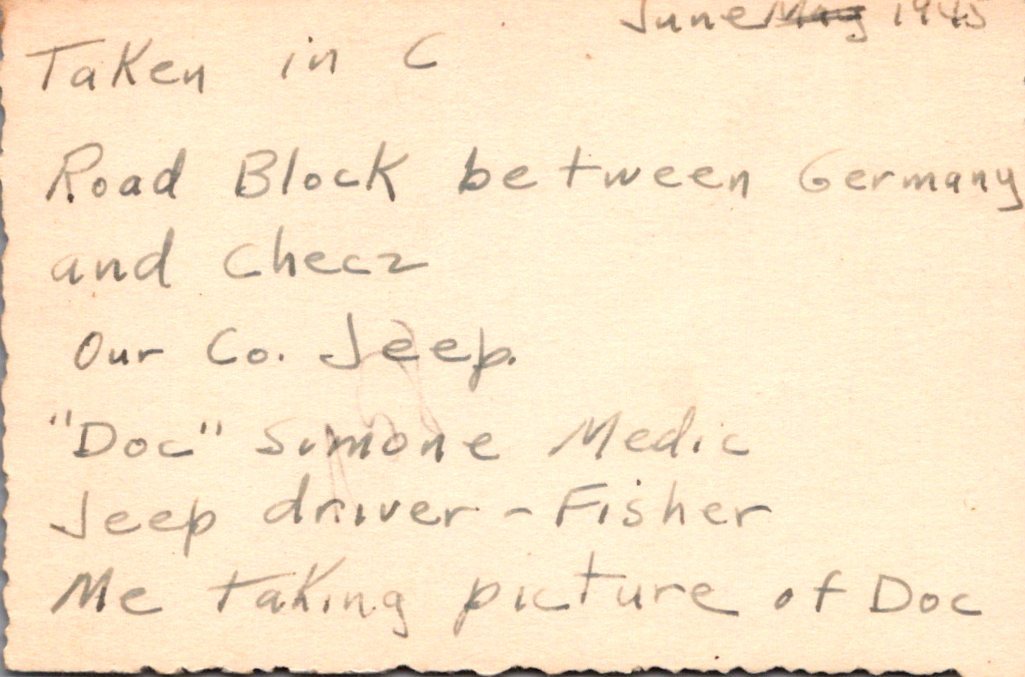 June May 1945
Taken in C
Road Block between Germany
and Checz
Our Co. Jeep.
"Doc" Simone Medic
Jeep driver - Fisher
Me taking picture of Doc